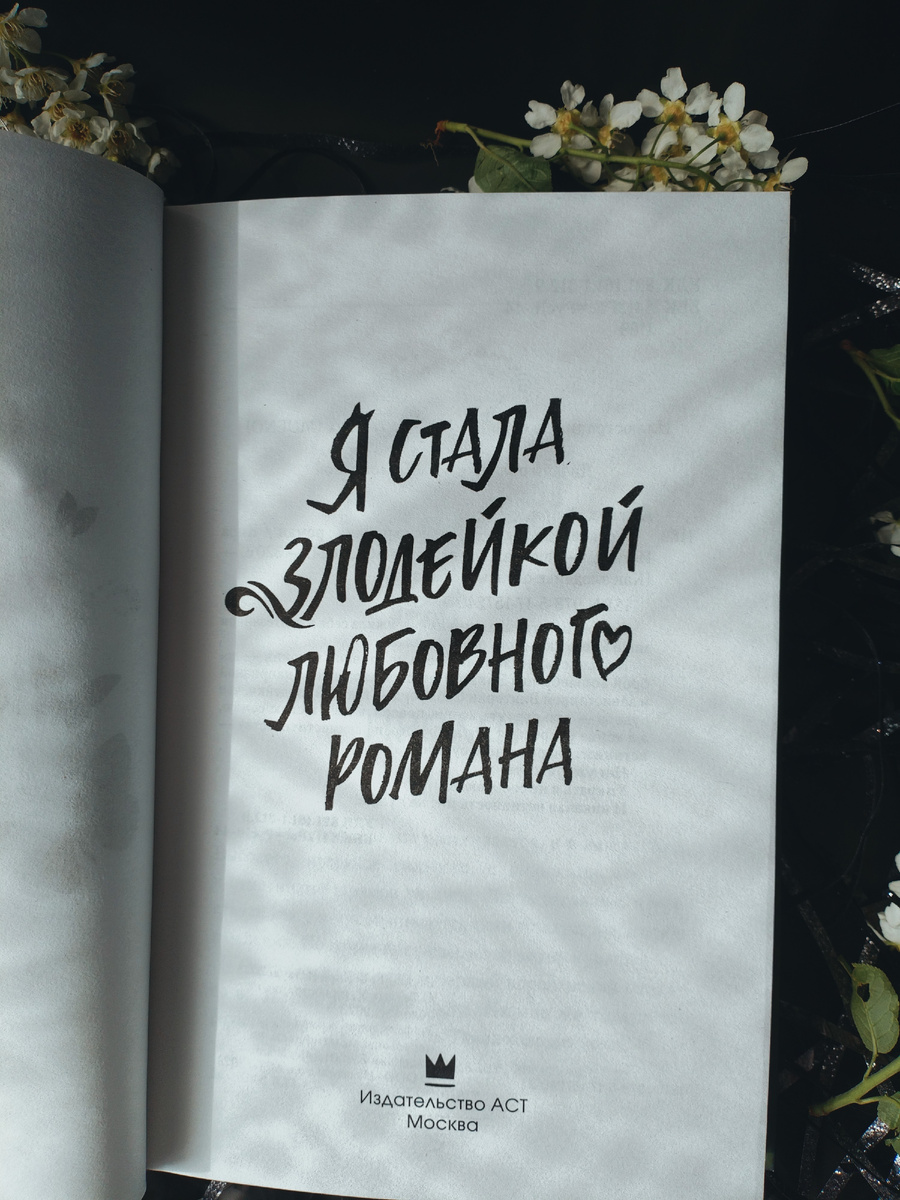 Я СТАЛА
ЗЛОДЕЙКОЙ
ЛЮБОВНОГО
РОМАНА
Издательство АСТ
Москва